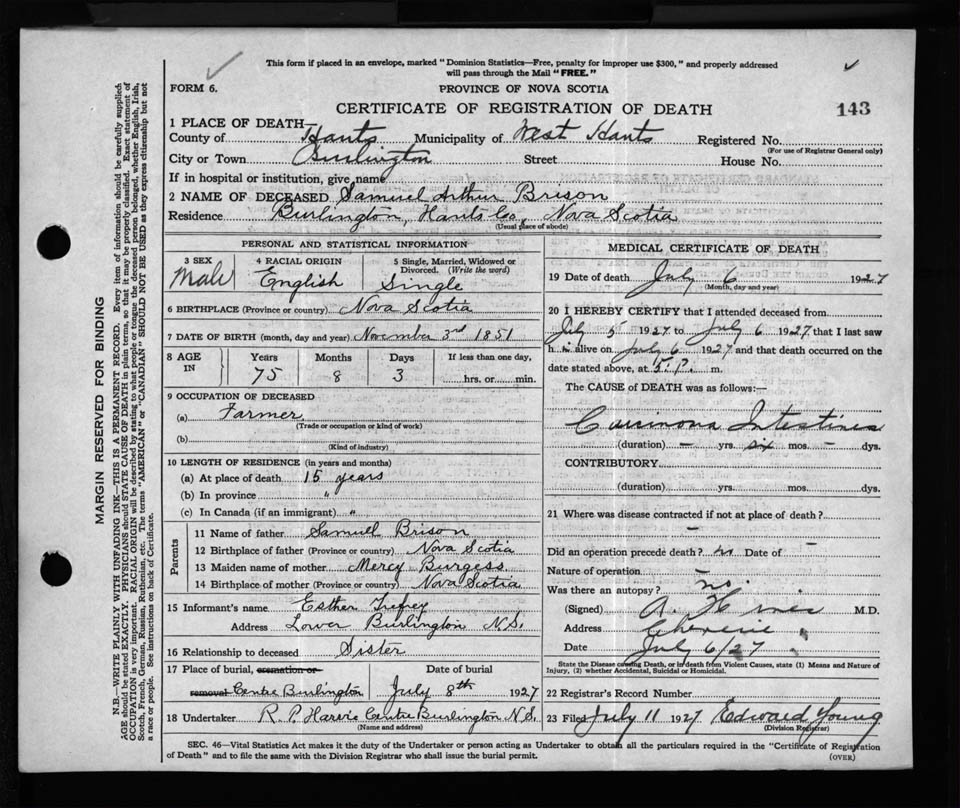 This form if placed in an envelope, marked "Dominion Statistics—Free, penalty for improper use $300," and properly addressed
will pass through the Mail "FREE."
FORM 6.
PROVINCE OF NOVA SCOTIA
CERTIFICATE OF REGISTRATION OF DEATH
143
1 PLACE OF DEATH—
County of Hants Municipality of West Hants Registered No.
(For use of Registrar General only)
City or Town Burlington Street House No.
If in hospital or institution, give name
2 NAME OF DECEASED Samuel Arthur Brison
Residence Burlington, Hants Co, Nova Scotia
(Usual place of abode)
PERSONAL AND STATISTICAL INFORMATION
3 SEX
Male
4 RACIAL ORIGIN
English
5 Single, Married, Widowed or
Divorced. (Write the word)
Single
6 BIRTHPLACE (Province or country) Nova Scotia
7 DATE OF BIRTH (month, day and year) November 3rd 1851
8 AGE
IN
Years
75
Months
8
Days
3
If less than one day,
hrs. or min.
9 OCCUPATION OF DECEASED
(a) Farmer
(Trade or occupation or kind of work)
(b)
(Kind of industry)
10 LENGTH OF RESIDENCE (in years and months)
(a) At place of death 15 years
(b) In province "
(c) In Canada (if an immigrant) "
Parents
11 Name of father Samuel Brison
12 Birthplace of father (Province or country) Nova Scotia
13 Maiden name of mother Mercy Burgess
14 Birthplace of mother (Province or country) Nova Scotia
15 Informant's name Esther
Address Lower Burlington N.S.
16 Relationship to deceased Sister
17 Place of burial, cremation or
removal Centre Burlington
Date of burial
July 8th 1927
18 Undertaker R. P. Harvie Centre Burlington N.S.
(Name and address)
MEDICAL CERTIFICATE OF DEATH
19 Date of death July 6 1927
(Month, day and year)
20 I HEREBY CERTIFY that I attended deceased from
July 5 1927 to July 6 1927 that I last saw
h im alive on July 6 1927 and that death occurred on the
date stated above, at 5 P. m.
The CAUSE of DEATH was as follows:—
Intestines
(duration) – yrs. six mos. – dys.
CONTRIBUTORY
(duration) yrs. mos. dys.
21 Where was disease contracted if not at place of death?
–
Did an operation precede death? no Date of –
Nature of operation –
Was there an autopsy? no.
(Signed) A. M.D.
Address Cheverie "
Date July 6/27
State the Disease causing Death, or in death from Violent Causes, state (1) Means and Nature of
Injury, (2) whether Accidental, Suicidal or Homicidal.
22 Registrar's Record Number
23 Filed July 11 1927 Edward Young
(Division Registrar)
SEC. 46—Vital Statistics Act makes it the duty of the Undertaker or person acting as Undertaker to obtain all the particulars required in the "Certificate of Registration
of Death" and to file the same with the Division Registrar who shall issue the burial permit.
(OVER)
MARGIN RESERVED FOR BINDING
N.B.—WRITE PLAINLY WITH UNFADING INK—THIS IS A PERMANENT RECORD. Every item of information should be carefully supplied.
AGE should be stated EXACTLY. PHYSICIANS should STATE CAUSE OF DEATH in plain terms, so that it may be properly classified. Exact statement of
OCCUPATION is very important. RACIAL ORIGIN will be described by stating to what people or tongue the deceased person belonged, whether English, Irish,
Scotch, French, German, Russian, Ruthenian, etc. The terms "AMERICAN" or "CANADIAN" SHOULD NOT BE USED as they express citizenship but not
a race or people. See instructions on back of Certificate.